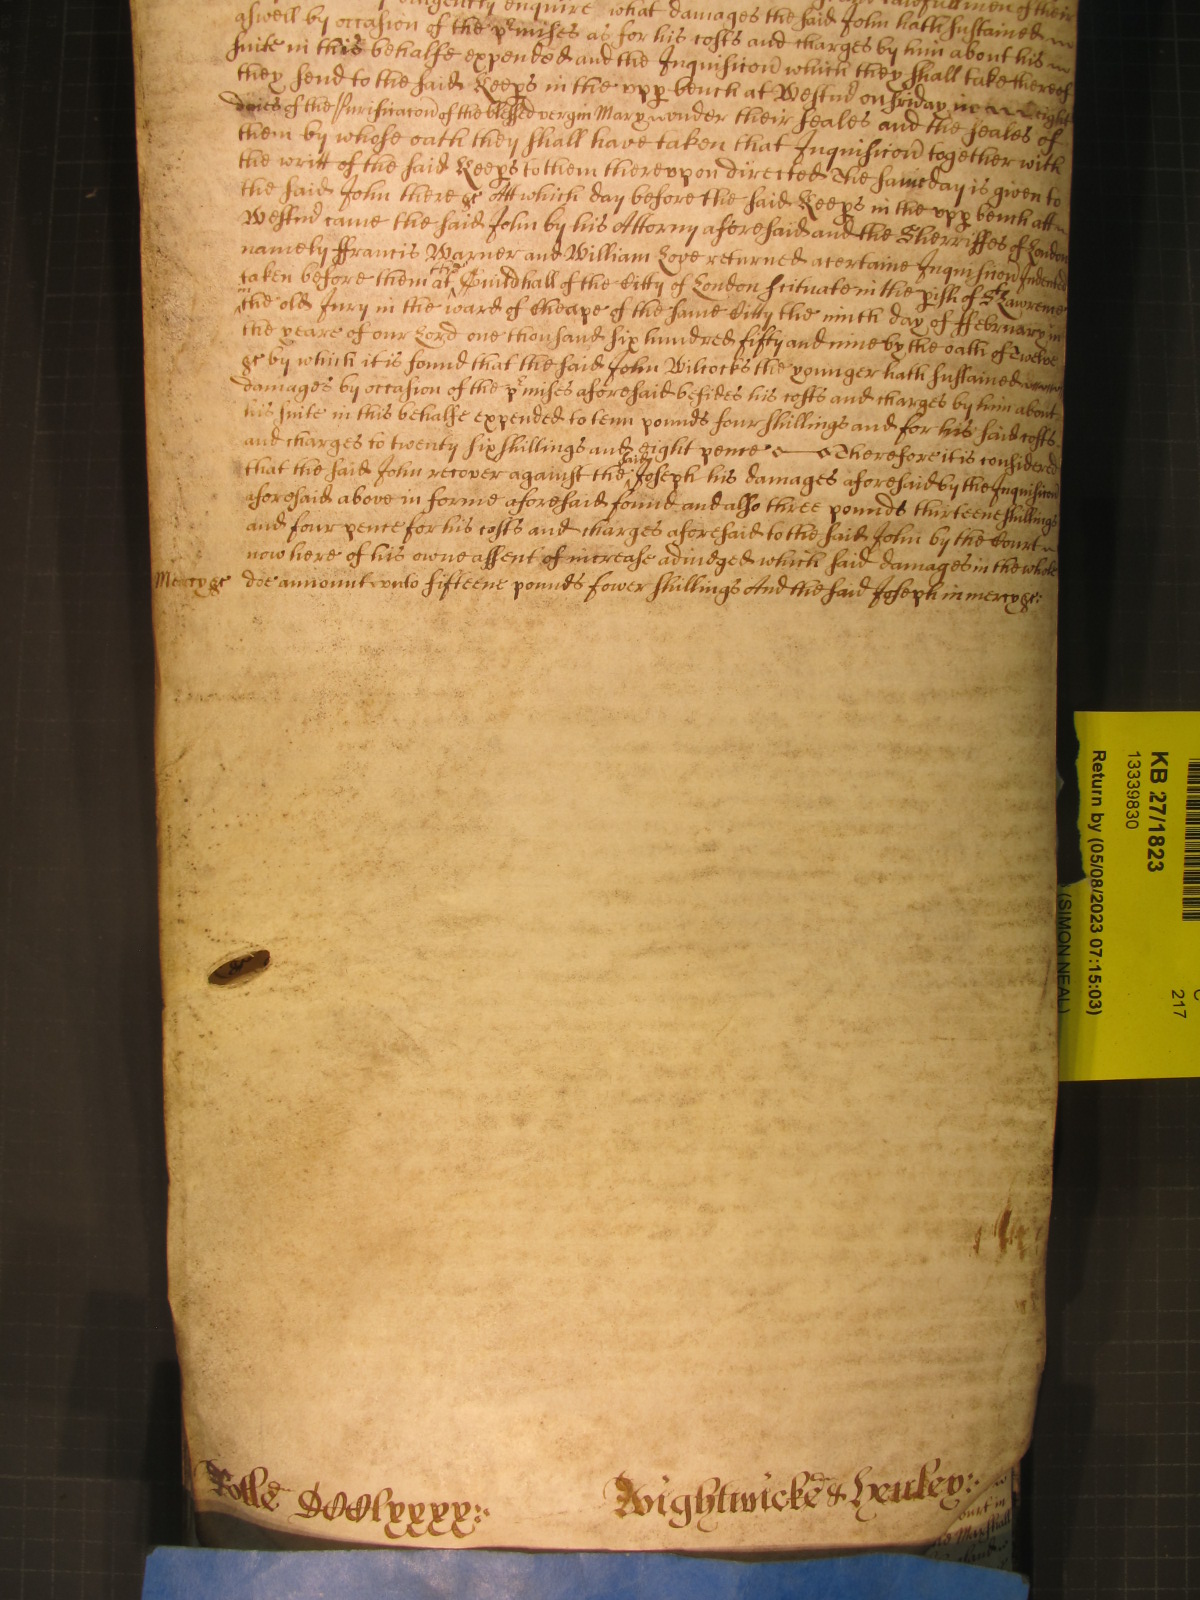 diligently enquire what damages the said John hath sustained
aswell by occasion of the p'mises as for his costs and charges by him about his
suite in this behalfe expended and the Inquisicon which they shall take thereof
they send to the said Keeps in the vpp bench at Westm̄ on Friday in eight
daies of the Purificacon of the blessed vergin Mary vnder their seales and the seales of
them by whose oath they shall have taken that Inquisicon together with
the writt of the said Keeps to them therevpon directed The same day is given to
the said John there &c Att which day before the said Keeps in the vpp bench att
Westm̄ came the said John by his Attorny aforesaid and the Sherriffes of London
namely ffrancis Warner and William Love returned a certaine Inquisicon Indented
taken before them at the Guildhall of the Citty of London scituate in the pish of St Lawrence
in the old Jury in the ward of Cheape of the same Citty the ninth day of ffebruary in
the yeare of our Lord one thousand six hundred fifty and nine by the oath of twelve
&c by which it is found that the said John Wilcocks the younger hath sustained
damages by occasion of the p'mises aforesaid besides his costs and charges by him about
his suite in this behalfe expended to tenn pounds four shillings and for his said costs
and charges to twenty six shillings and eight pence Therefore it is considered
that the said John recover against the said Joseph his damages aforesaid by the Inquisicon
aforesaid above in forme aforesaid found and also three pounds thirteene shillings
and four pence for his costs and charges aforesaid to the said John by the Court
now here of his owne assent of increase adiudged which said damages in the whole
Mercy &c doe amount vnto fifteene pounds fower shillings And the said Joseph in mercy &c:
KB 27/1823
13339830
Return by (05/08/2023 07:15:03)
(SIMON NEAL)
217
Rolle DCClxxxx:
Wightwicke & Henley: